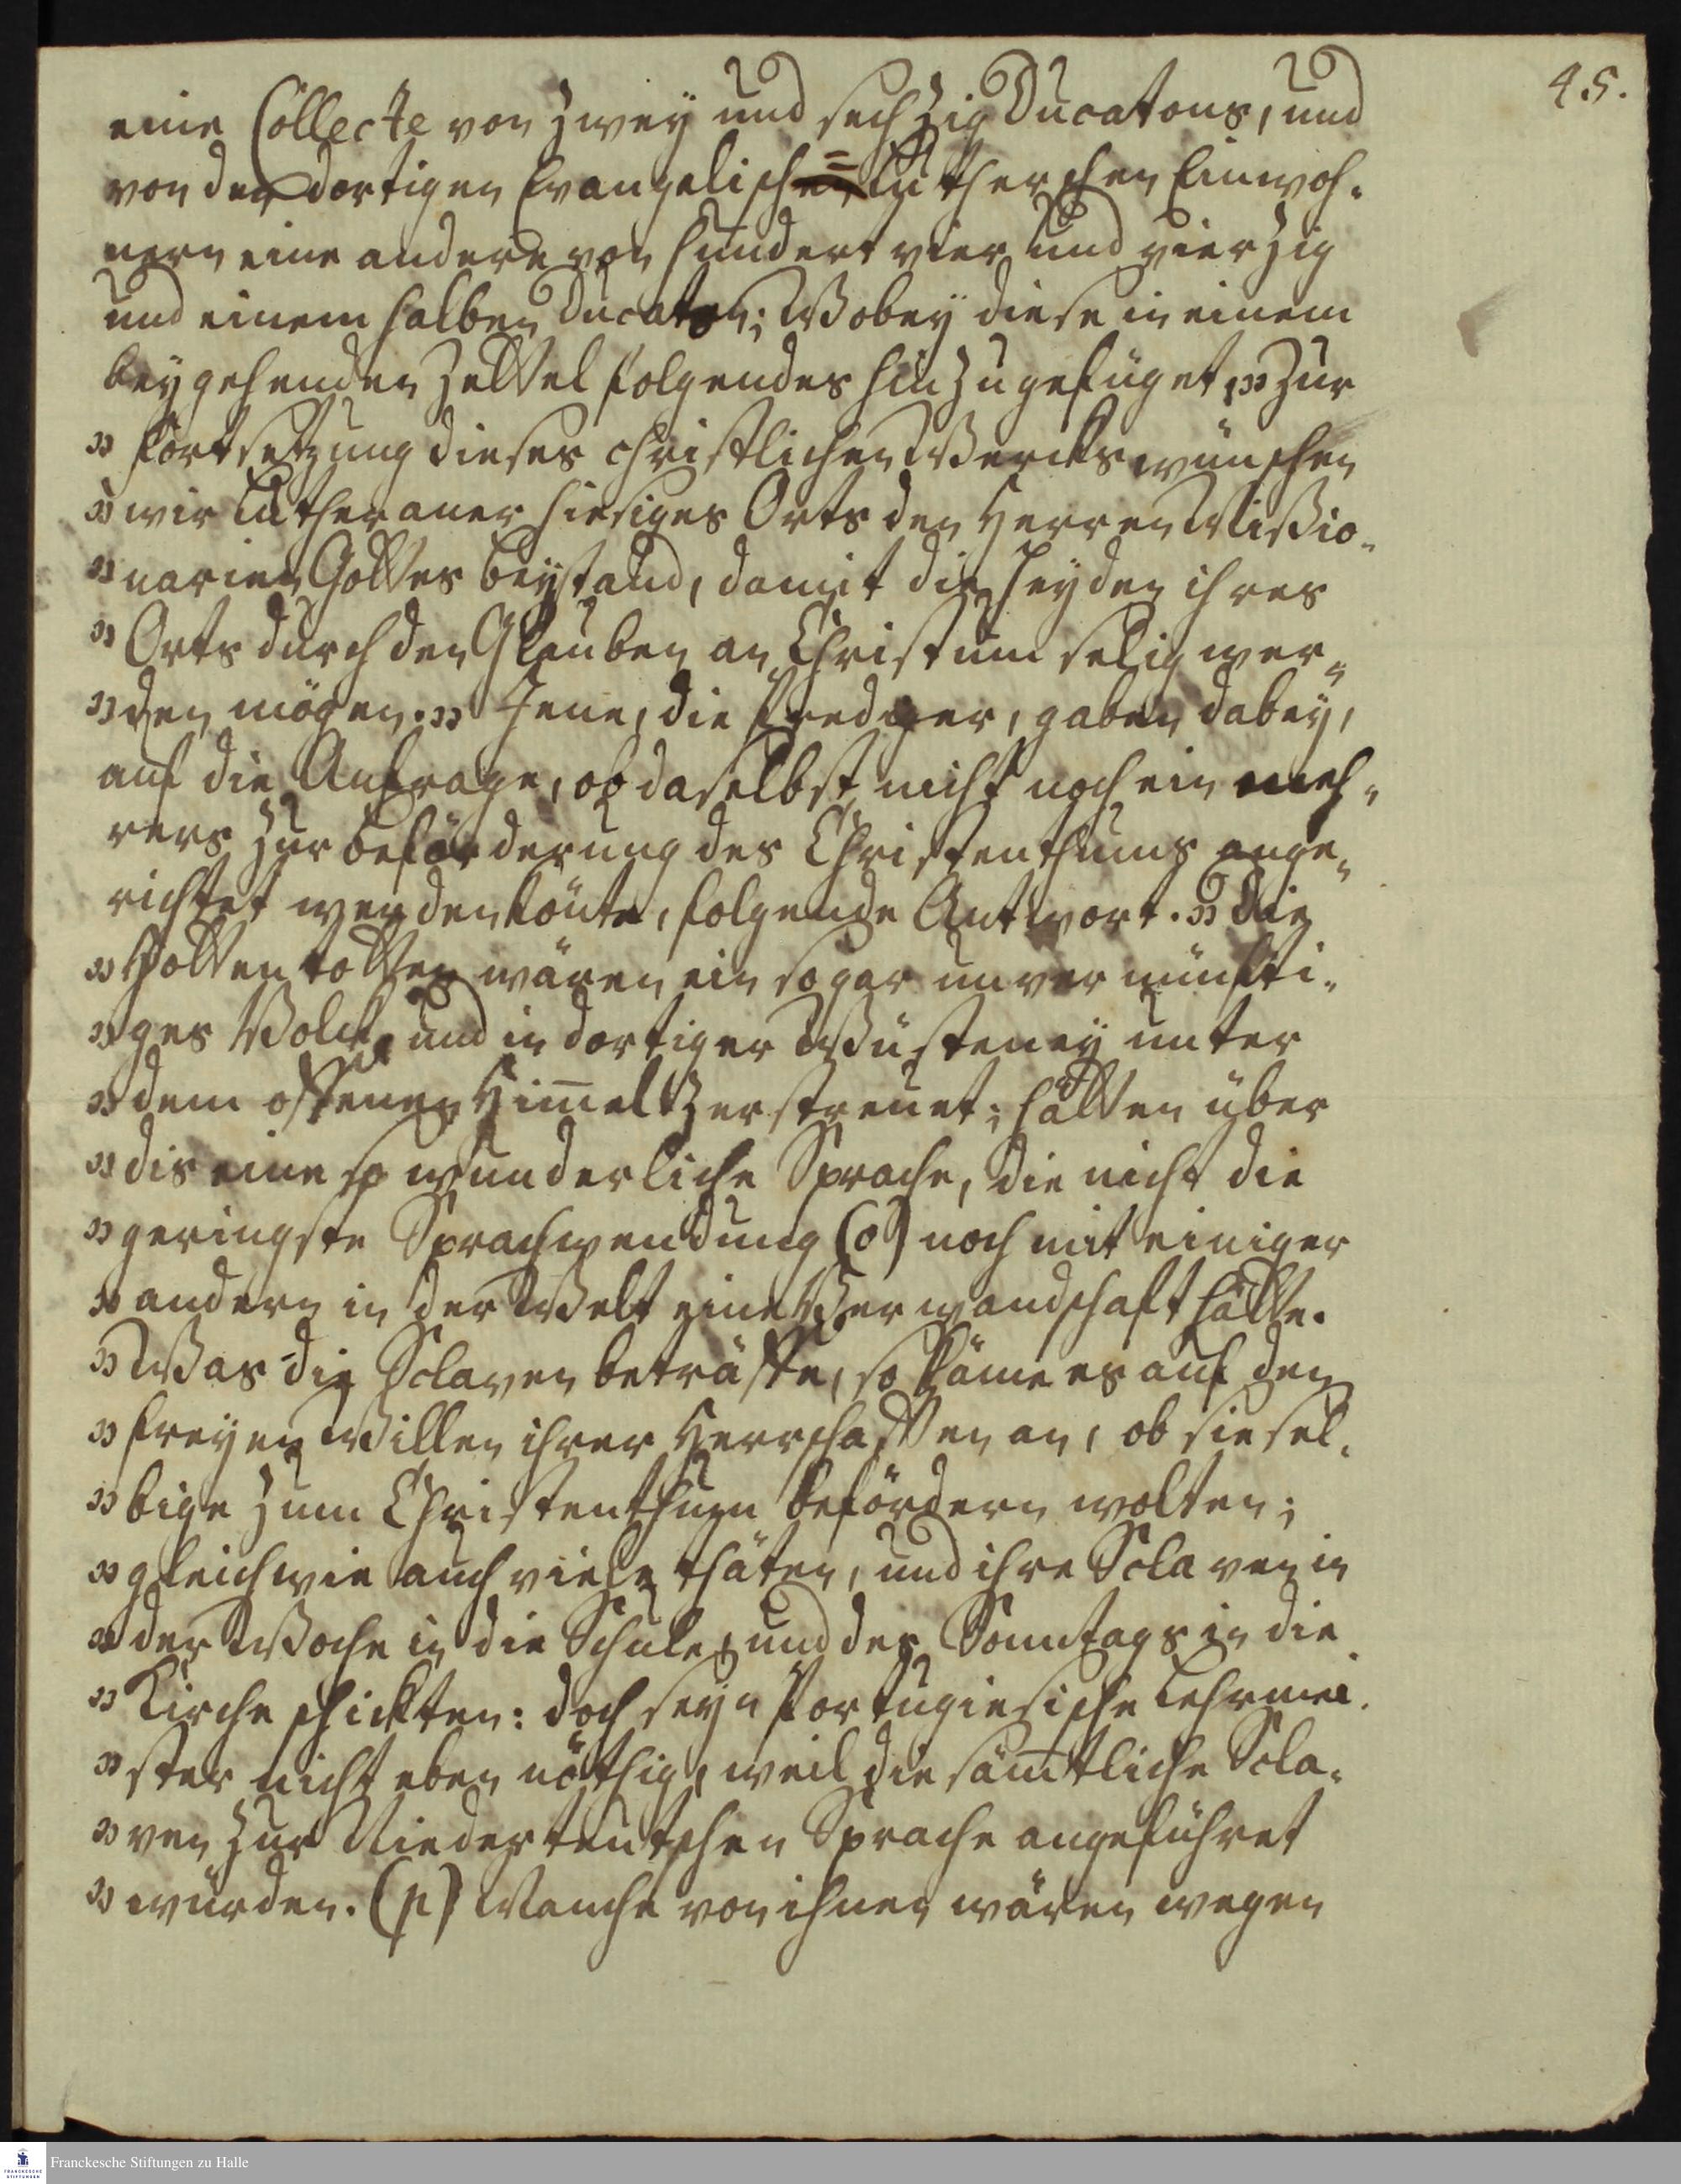 45.
eine Collecte von zwey und sechzig Ducatons, und
von den dortigen Evangelisch=Lutherschen Einwoh-
nern eine andere von hundert vier und vierzig
und einem halben Ducaten; Wobey diese in einem
beygehenden Zettel folgendes hinzugefüget: „Zur
„Fortsetzung dieses christlichen Wercks wünschen
„wir Lutheraner hiesiges Orts den Herren Missio-
„narien Gottes Beystand, damit die Heyden ihres
„Orts durch den Glauben an Christum selig wer-
„den mögen.„ Jene, die Prediger, gaben dabey,
auf die Anfrage, ob daselbst nicht noch ein meh-
rers zur Beförderung des Christenthums ange-
richtet werden könte, folgende Antwort. „Die
„Hottentotten wären ein so gar unvernünfti-
„ges Volck, und in dortiger Wüsteney unter
„dem offenen Him̅el zerstreuet; hätten über
„dis eine so wunderliche Sprache, die nicht die
„geringste Sprachwendung (o) noch mit einiger
„andern in der Welt eine Verwandschaft hätte.
„Was die Sclaven beträffe, so käme es auf den
„freyen Willen ihrer Herrschafften an, ob sie sel-
„bige zum Christenthum befördern wolten;
„gleichwie auch viele thäten, und ihre Sclaven in
„der Woche in die Schule, und des Sonntags in die
„Kirche schickten: doch seyn Portugiesische Lehrmei-
„ster nicht eben nöthig, weil die säm̅tliche Scla-
„ven zur Niederteutschen Sprache angeführet
„würden. (p) Manche von ihnen wären wegen
Franckesche Stiftungen zu Halle
FRANCKESCHE
STIFTUNGEN